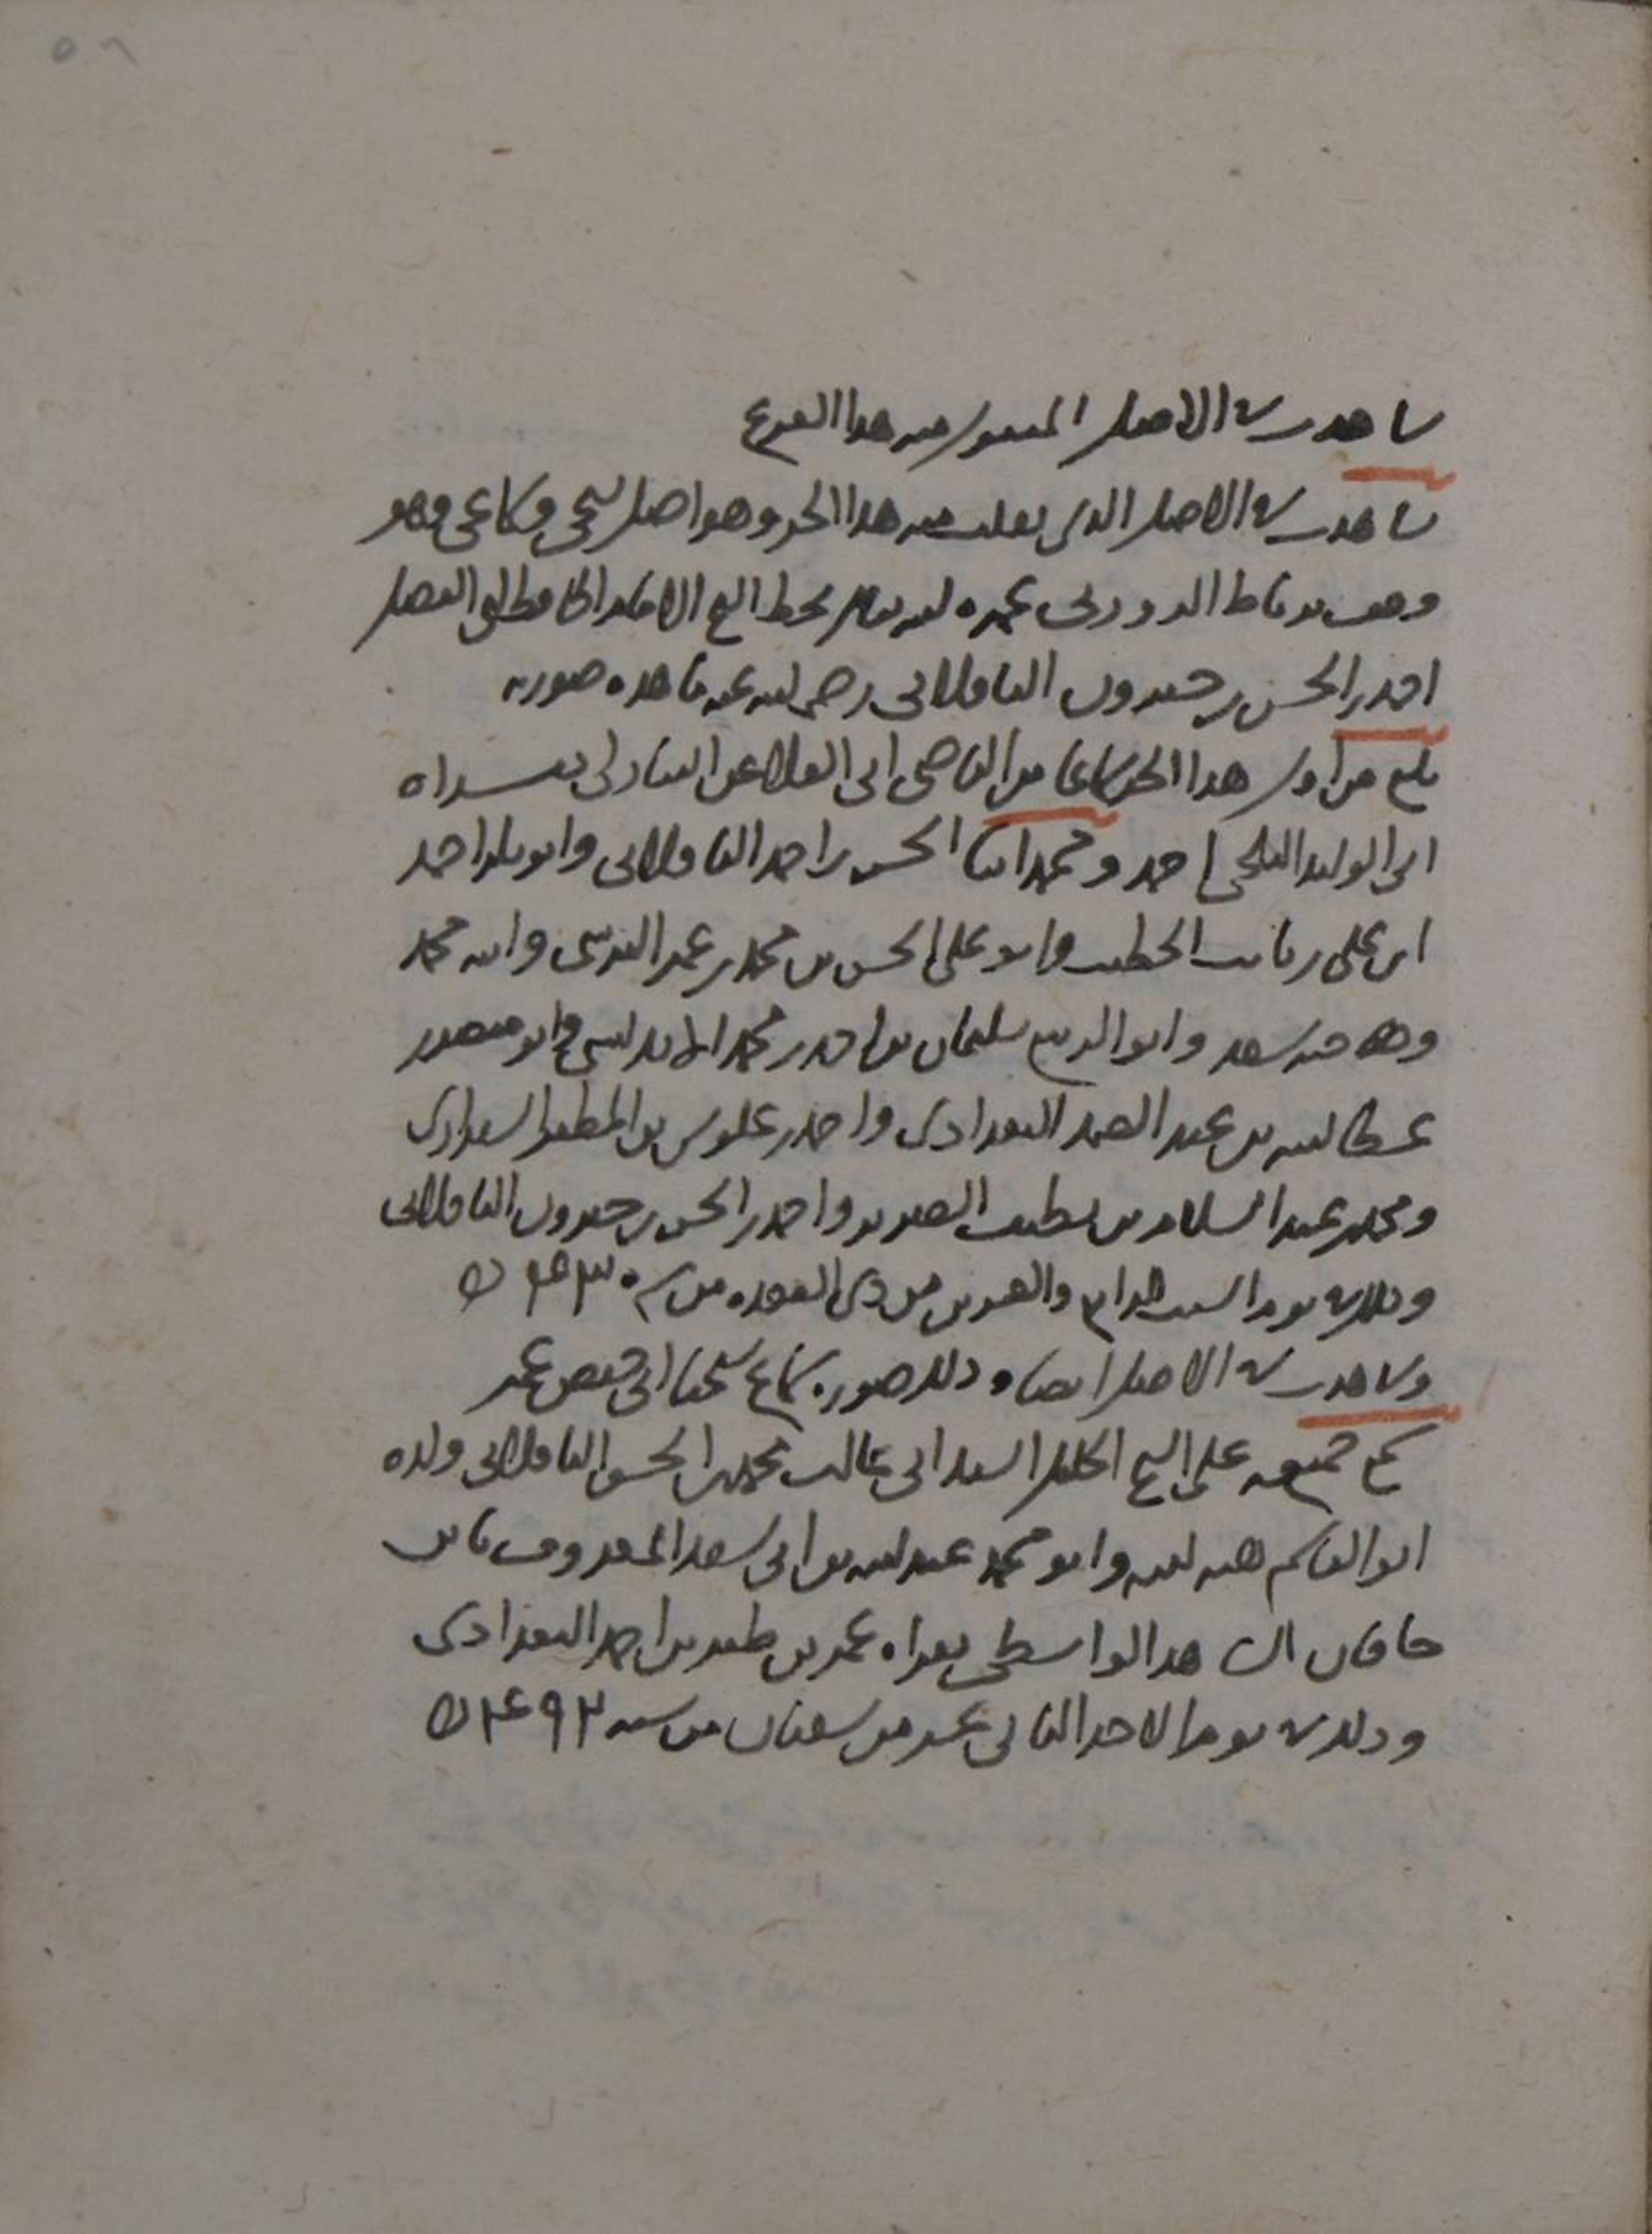 شاهدت في الاصل المنقول منه هذا الفرع
شاهدت في الاصل الذي نقلت منه هذا الجزو وهو اصل شيخي وسماعي وهو
وقف برباط الدوري عمره الله تعالى بخط الشيخ الامام الحافظ ابي الفضل
احمد بن الحسن بن خيرون الباقلاني رضي الله عنه ما هذه صورته
بلغ من اول هذا الجزو سماعا من القاضي ابي العلا عن البنا دلى بقراه
ابي الوليد البلخي احمد ومحمد ابنا الحسن بن احمد الباقلاني وابو بكر احمد
ابن علي بن ثابت الخطيب وابو علي الحسن بن محمد بن عمر النرسي وابنه محمد
وهو حينئذ وابو الربيع سليمان بن احمد بن محمد الاندلسي وابو منصور
عطا الله بن عبد الصمد البغدادي واحمد بن علوس بن المطهر
ومحمد بن عبد السلام بن لطيف الضرير واحمد بن الحسن بن خيرون الباقلاني
وذلك في يوم السبت الرابع والعشرين من ذي القعدة من سنة ٤٢٣
وشاهدت في الاصل ايضا وذلك صورة سماع شيخنا ابي حفص عمر
سمع جميعه علي الشيخ الجليل السيد ابي غالب محمد بن الحسن الباقلاني ولده
ابو القاسم هبه الله وابو محمد عبد الله بن ابي سعد المعروف بابن
خاقان الشاهد الواسطي بقراه عمر بن ظفر بن احمد البغدادي
وذلك في يوم الاحد الثاني عشر من شعبان من سنه ٤٩٢